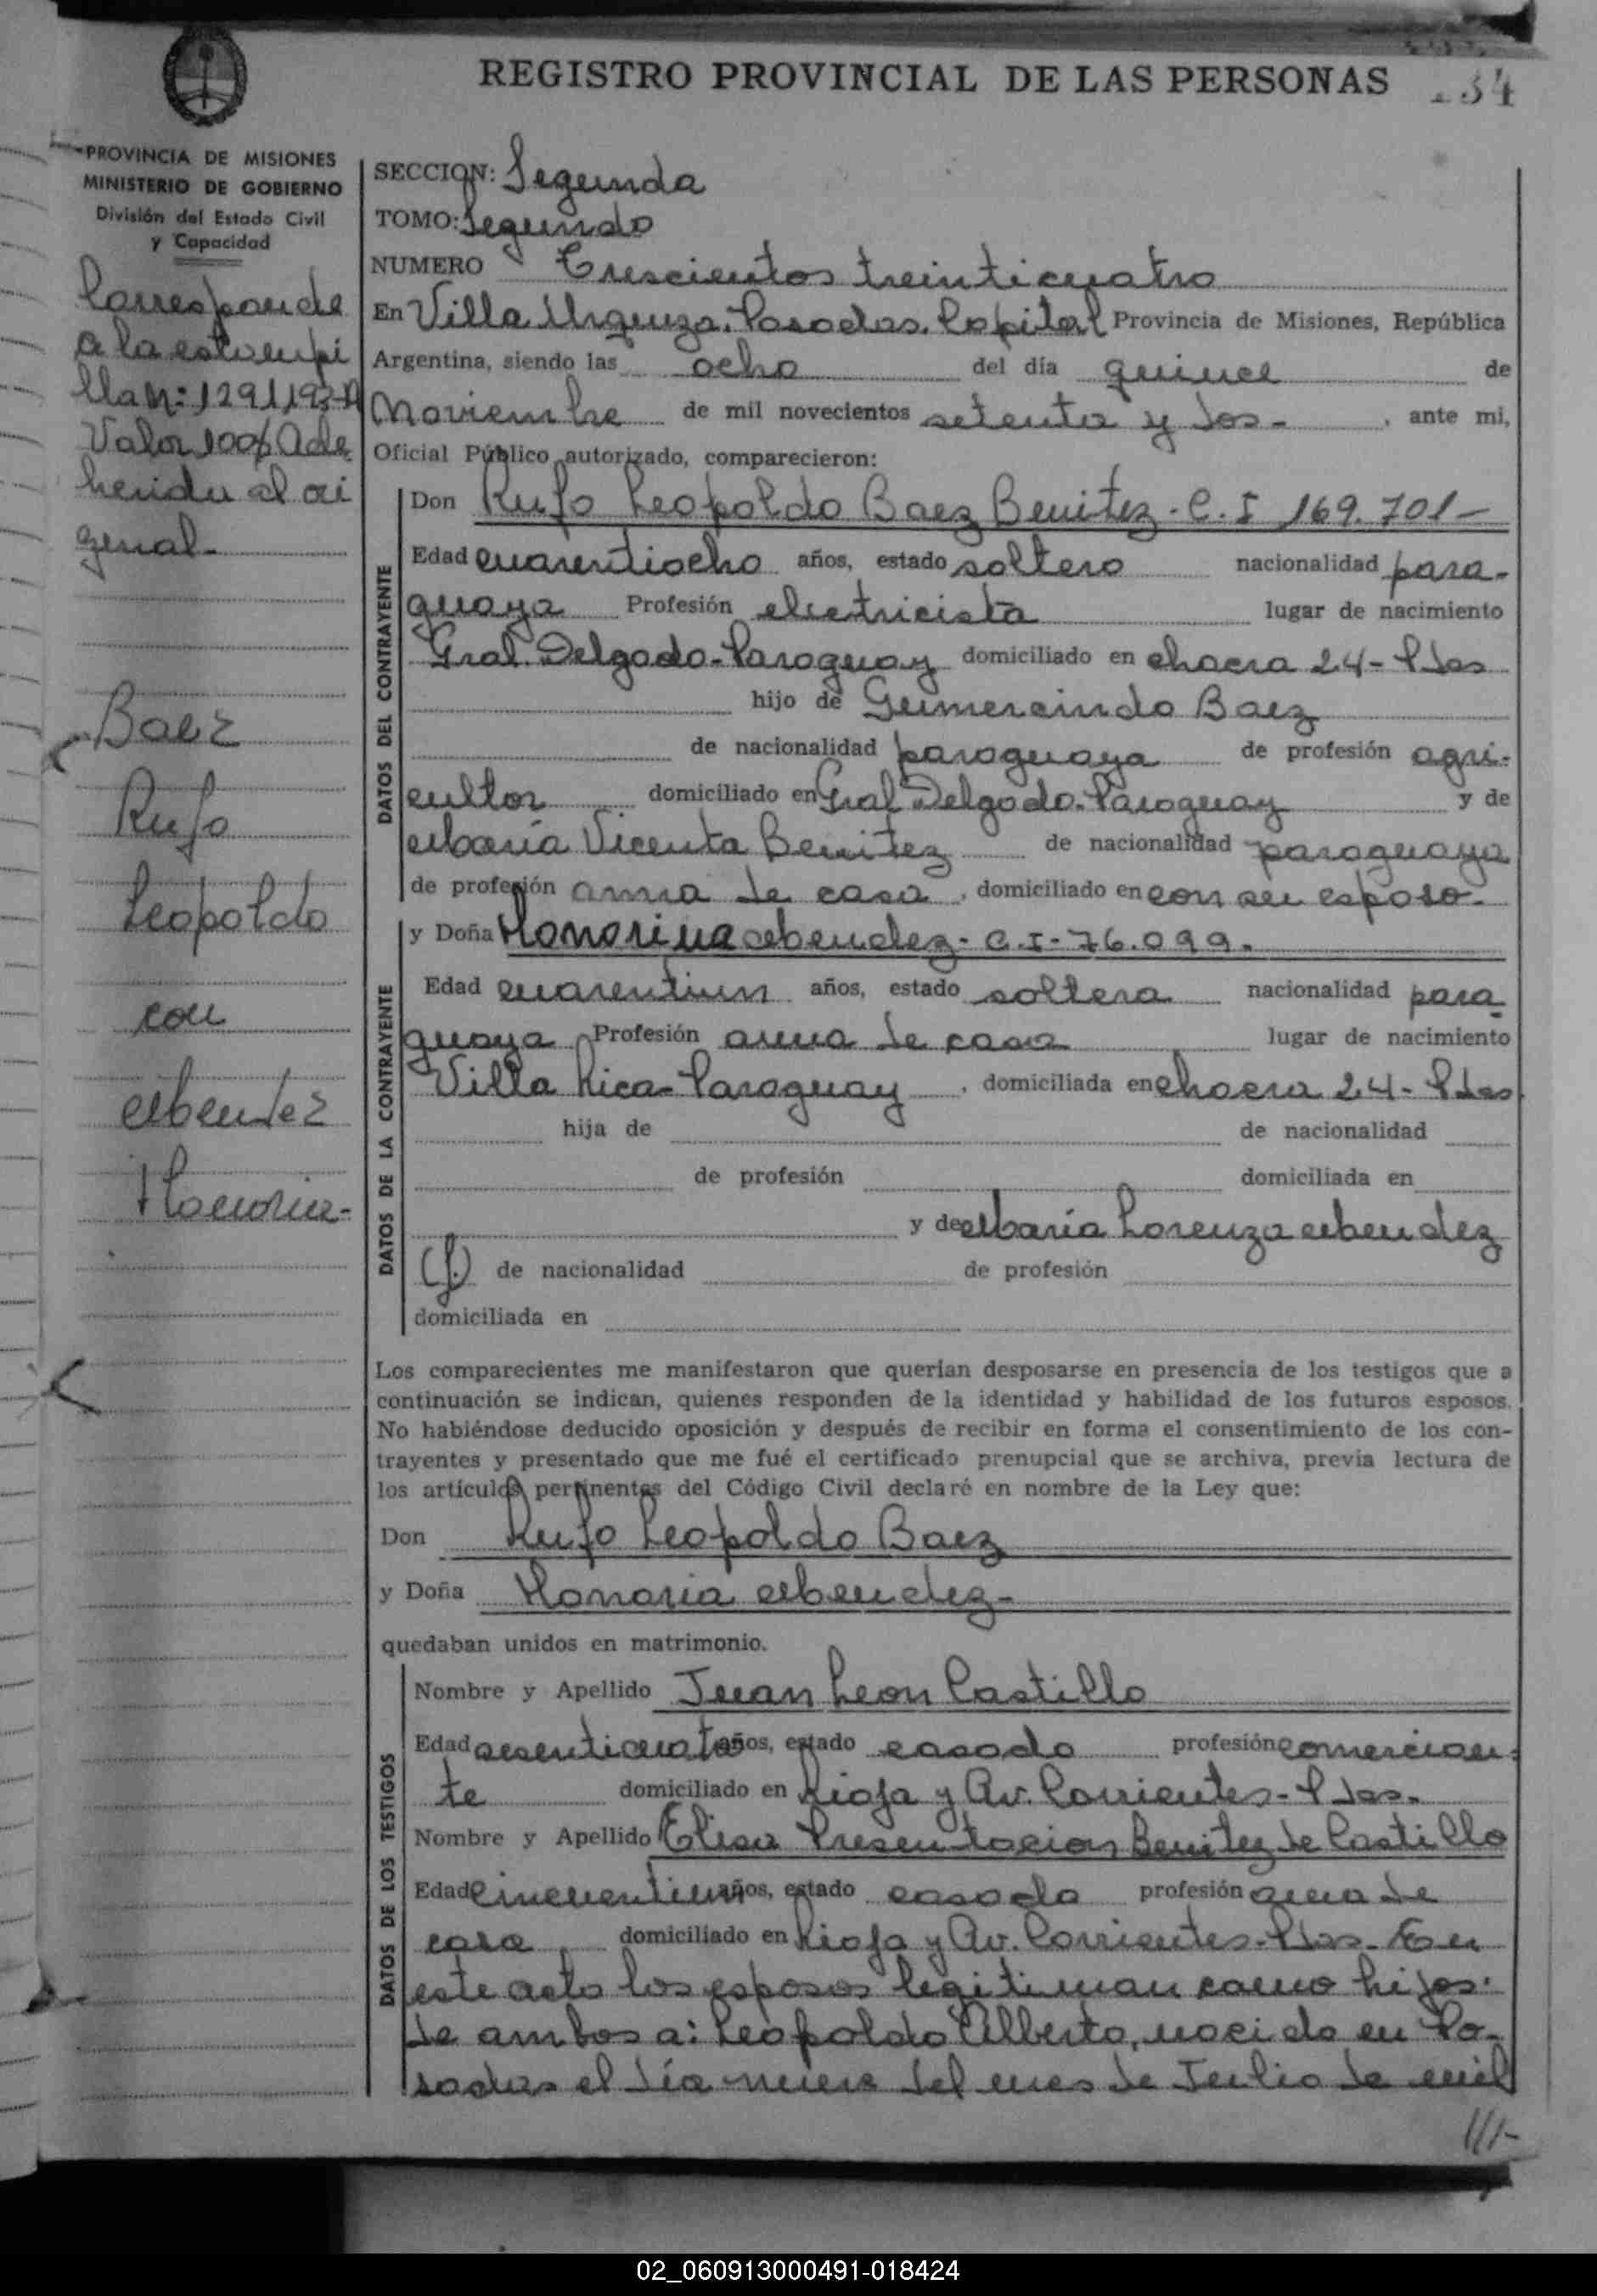 REGISTRO PROVINCIAL DE LAS PERSONAS 134
PROVINCIA DE MISIONES
MINISTERIO DE GOBIERNO
División del Estado Civil
y Capacidad
Corresponde
a la estampi
lla Nº: 1291193-A
Valor 100$ Ade
herida al ori
ginal-
Baez
Rufo
Leopoldo
con
Mendez
Honoria-
SECCION: Segunda
TOMO: Segundo
NUMERO Trescientos treinticuatro
En Villa Urquiza. Posadas. Capital Provincia de Misiones, República
Argentina, siendo las ocho del día quince de
Noviembre de mil novecientos setenta y dos- , ante mi,
Oficial Público autorizado, comparecieron:
DATOS DEL CONTRAYENTE
Don Rufo Leopoldo Baez Benitez- C.I 169.701-
Edad cuarentiocho años, estado soltero nacionalidad para-
guaya Profesión electricista lugar de nacimiento
Gral Delgado-Paraguay domiciliado en chacra 24- Pdas
hijo de Gumercindo Baez
de nacionalidad paraguaya de profesión agri-
cultor domiciliado en Gral Delgado-Paraguay y de
María Vicenta Benitez de nacionalidad paraguaya
de profesión ama de casa , domiciliado en con su esposo-
DATOS DE LA CONTRAYENTE
y Doña Honoria Mendez- C.I- 76.099.
Edad cuarentiun años, estado soltera nacionalidad para-
guaya Profesión ama de casa lugar de nacimiento
Villa Rica-Paraguay , domiciliada en chacra 24- Pdas
hija de de nacionalidad
de profesión domiciliada en
y de María Lorenza Mendez
(f.) de nacionalidad de profesión
domiciliada en
Los comparecientes me manifestaron que querían desposarse en presencia de los testigos que a
continuación se indican, quienes responden de la identidad y habilidad de los futuros esposos.
No habiéndose deducido oposición y después de recibir en forma el consentimiento de los con-
trayentes y presentado que me fué el certificado prenupcial que se archiva, previa lectura de
los artículos pertinentes del Código Civil declaré en nombre de la Ley que:
Don Rufo Leopoldo Baez
y Doña Honoria Mendez-
quedaban unidos en matrimonio.
DATOS DE LOS TESTIGOS
Nombre y Apellido Juan Leon Castillo
Edad sesenticuatro años, estado casado profesión comercian-
te domiciliado en Rioja y Av. Corrientes- Pdas-
Nombre y Apellido Elisa Presentacion Benitez de Castillo
Edad cincuentiun años, estado casada profesión ama de
casa domiciliado en Rioja y Av. Corrientes-Pdas- En
este acto los esposos legitiman como hijos
de ambos a: Leopoldo Alberto, nacido en Po-
sadas el día nueve del mes de Julio de mil
///-
02_060913000491-018424